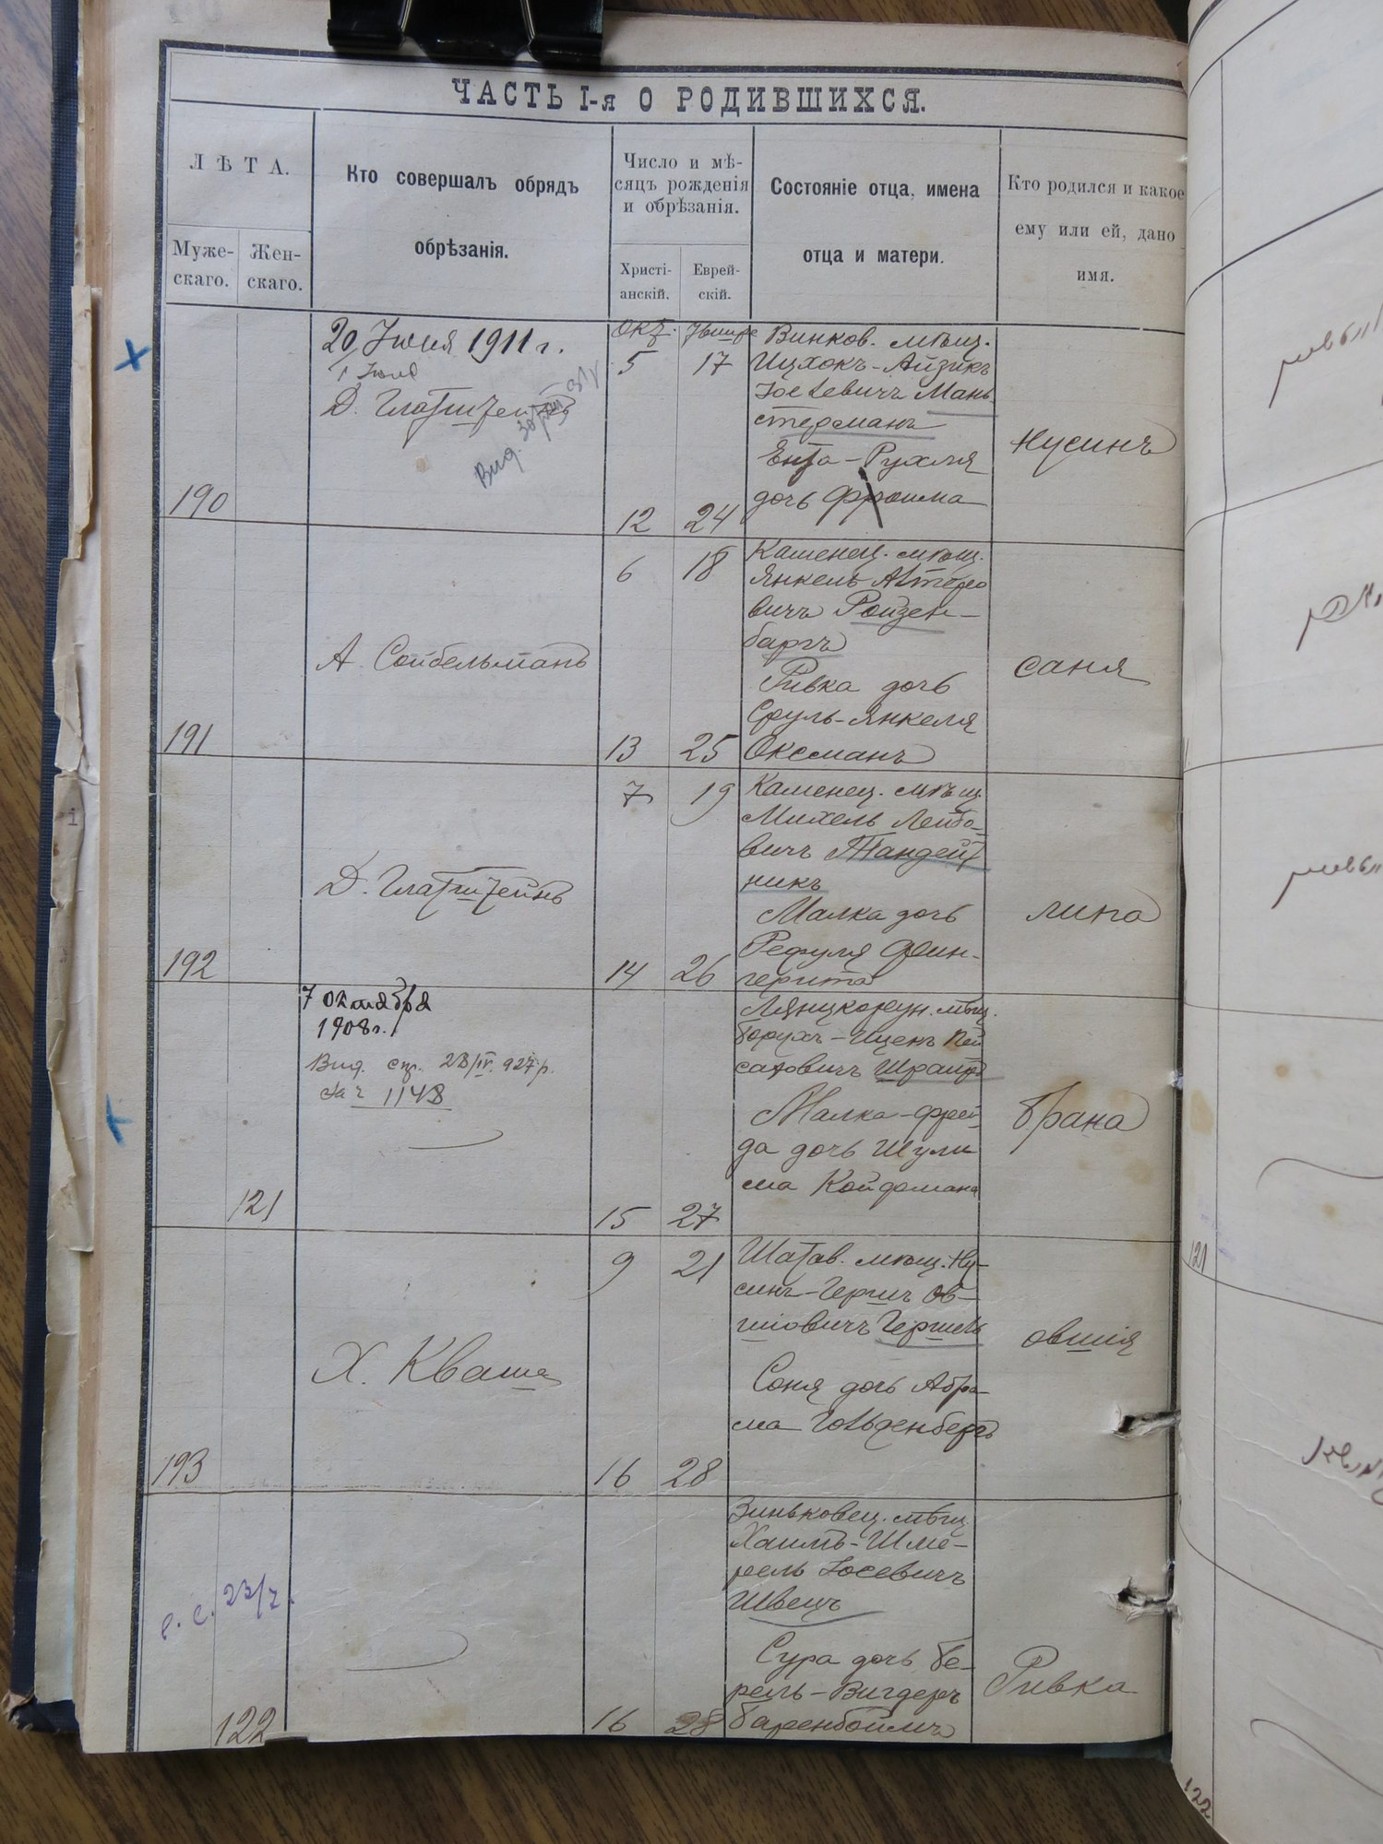 ЧАСТЬ I-я О РОДИВШИХСЯ.
ЛѢТА.
Муже-
скаго.
Жен-
скаго.
Кто совершалъ обрядъ
обрѣзанія.
Число и мѣ-
сяцъ рожденія
и обрѣзанія.
Христі-
анскій.
Еврей-
скій.
Состояніе отца, имена
отца и матери.
Кто родился и какое
ему или ей, дано
имя.
190
20 Іюня 1911 г.
Д. Глатштейнъ
Вид.
Окт.
5
17
12
24
Винков. мѣщ.
Ицхокъ-Айзикъ
Іосевичъ Мань
стерманъ
Ента-Рухля
дочь Фроима
Нусинъ
191
А. Сойбельманъ
6
18
13
25
Каменец. мѣщ.
Янкель
вичъ Ройзен-
баргъ
Ривка дочь
Сруль-Янкеля
Оксманъ
Саня
192
Д. Глатштейнъ
7
19
14
26
Каменец. мѣщ.
Михель Лейбо-
вичъ Тандейт
никъ
Малка дочь
Рефуля Фин-
герита
Липа
121
7 Октября
1908 г.
Вид. 23/IV. 927 р.
За ч 1148
15
27
Лянцкорун. мѣщ.
Борухъ-Иценъ Пей
саховичъ
Малка-Фрей
да дочь Шули
ма Койфмана
Брана
193
Х. Кваша
9
21
16
28
Шатав. мѣщ. Ну-
синъ-Гершъ Ов-
шіовичъ Гершъ
Соня дочь Абра-
ма Гольденбергъ
Овшія
122
с. с. 23/
16
28
Зиньковец. мѣщ.
Хаимъ-Шме-
рель Іосевичъ
Швецъ
Сура дочь Бе-
рель-Вигдеръ
Баренбоймъ
Ривка
121
122